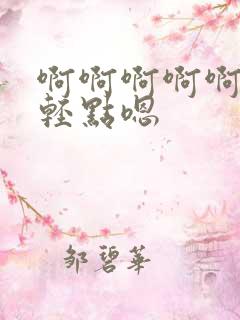 啊啊啊啊啊
輕點嗯
邹碧華